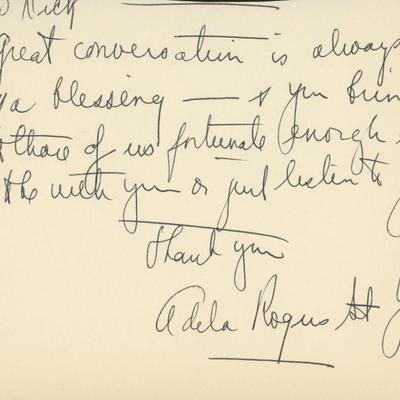 Nick
great conversation is always
a blessing — & you brin
those of us fortunate enough
with you or just listen to
Thank you
Adela Rogers St